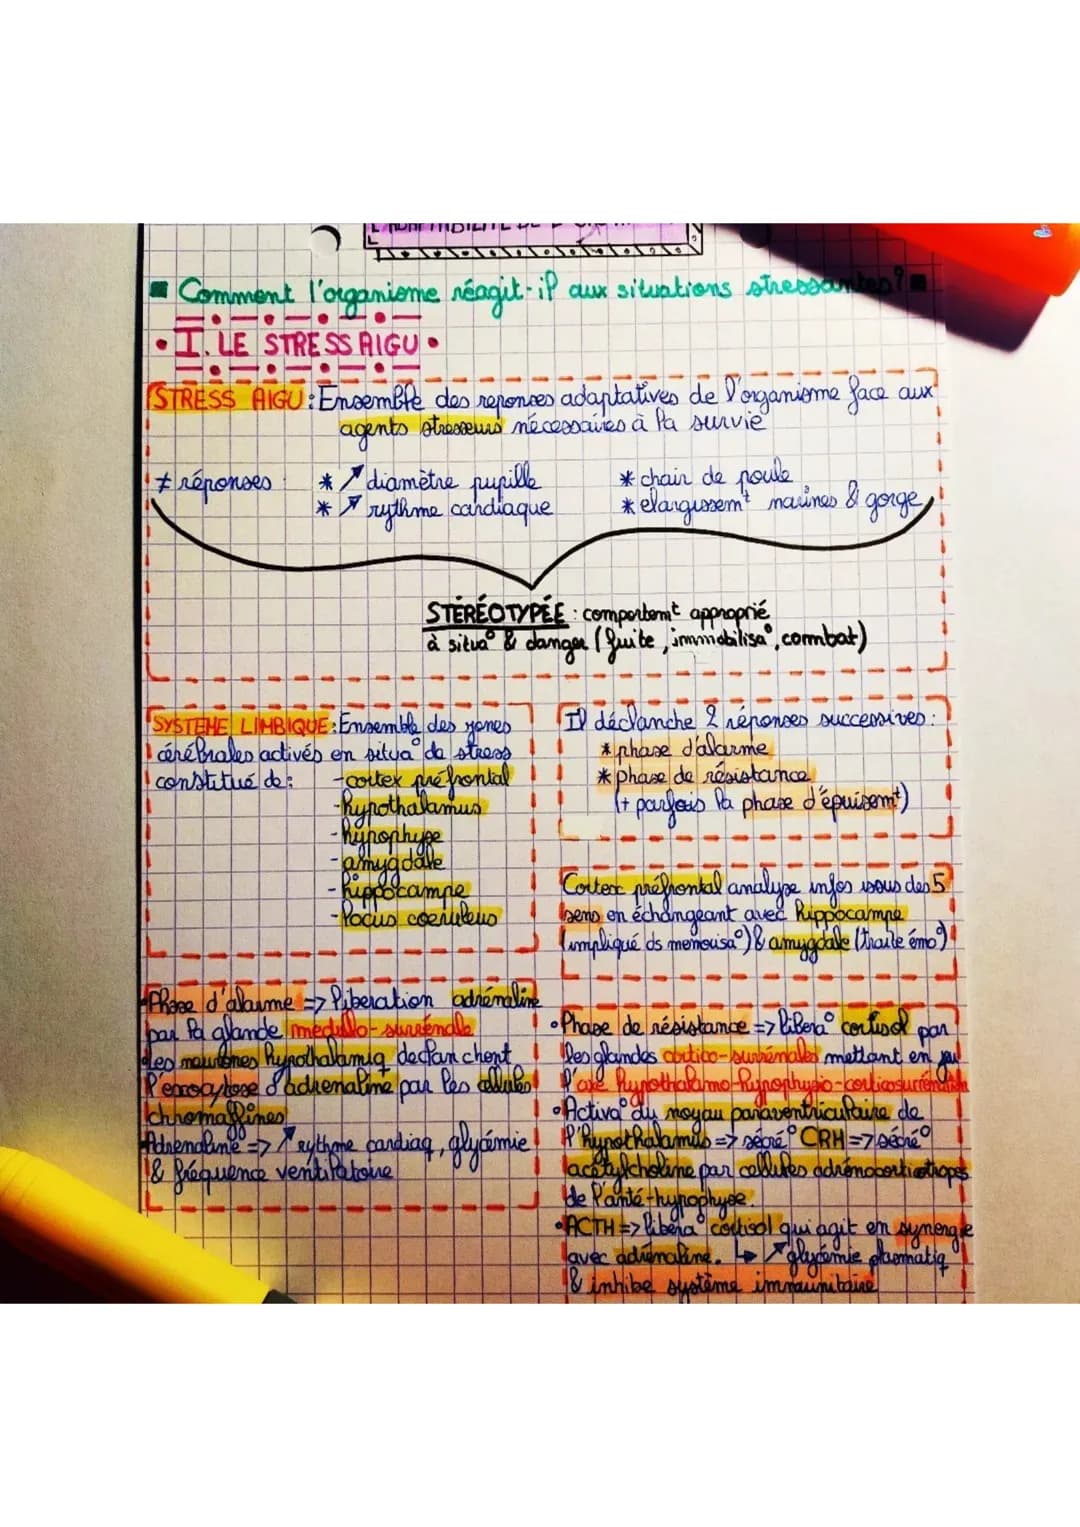 ■ Comment l'organisme réagit-il aux situations stressantes? ■
• I. LE STRESS AIGU •
STRESS AIGU : Ensemble des reponses adaptatives de l'organisme face aux
agents stresseurs nécessaires à la survie
≠ réponses : * ↗ diamètre pupille
* ↗ rythme cardiaque
* chair de poule
* elargissemt narines & gorge
STÉRÉOTYPÉE : comportemt approprié
à situa° & danger (fuite, immobilisa°, combat)
SYSTEME LIMBIQUE : Ensemble des zones
cérébrales activés en situa° de stress
constitué de : - cortex préfrontal
- hypothalamus
- hypophyse
- amygdale
- hippocampe
- locus coeruleus
Il déclanche 2 réponses successives :
* phase d'alarme
* phase de résistance
(+ parfois la phase d'épuisemt)
Cortex préfrontal analyse infos issus des 5
sens en échangeant avec hippocampe
(impliqué ds memorisa°) & amygdale (traite émo°)
• Phase d'alarme => liberation adrénaline
par la glande medullo-surrénale
• les neurones hypothalamiq declanchent
l'exocytose d'adrenaline par les cellules
chromaffines
• Adrenaline => ↗ rythme cardiaq, glycémie
& fréquence ventilatoire
• Phase de résistance => libéra° cortisol par
les glandes cortico-surrénales mettant en jeu
l'axe hypothalamo-hypophyso-corticosurrénalien
• Activa° du noyau paraventriculaire de
l'hypothalamus => sécré° CRH => sécré°
acétylcholine par cellules adrénocorticotropes
de l'anté-hypophyse.
• ACTH => libéra° cortisol qui agit en synergie
avec adrénaline. ↳ ↗ glycémie plasmatiq
& inhibe système immunitaire